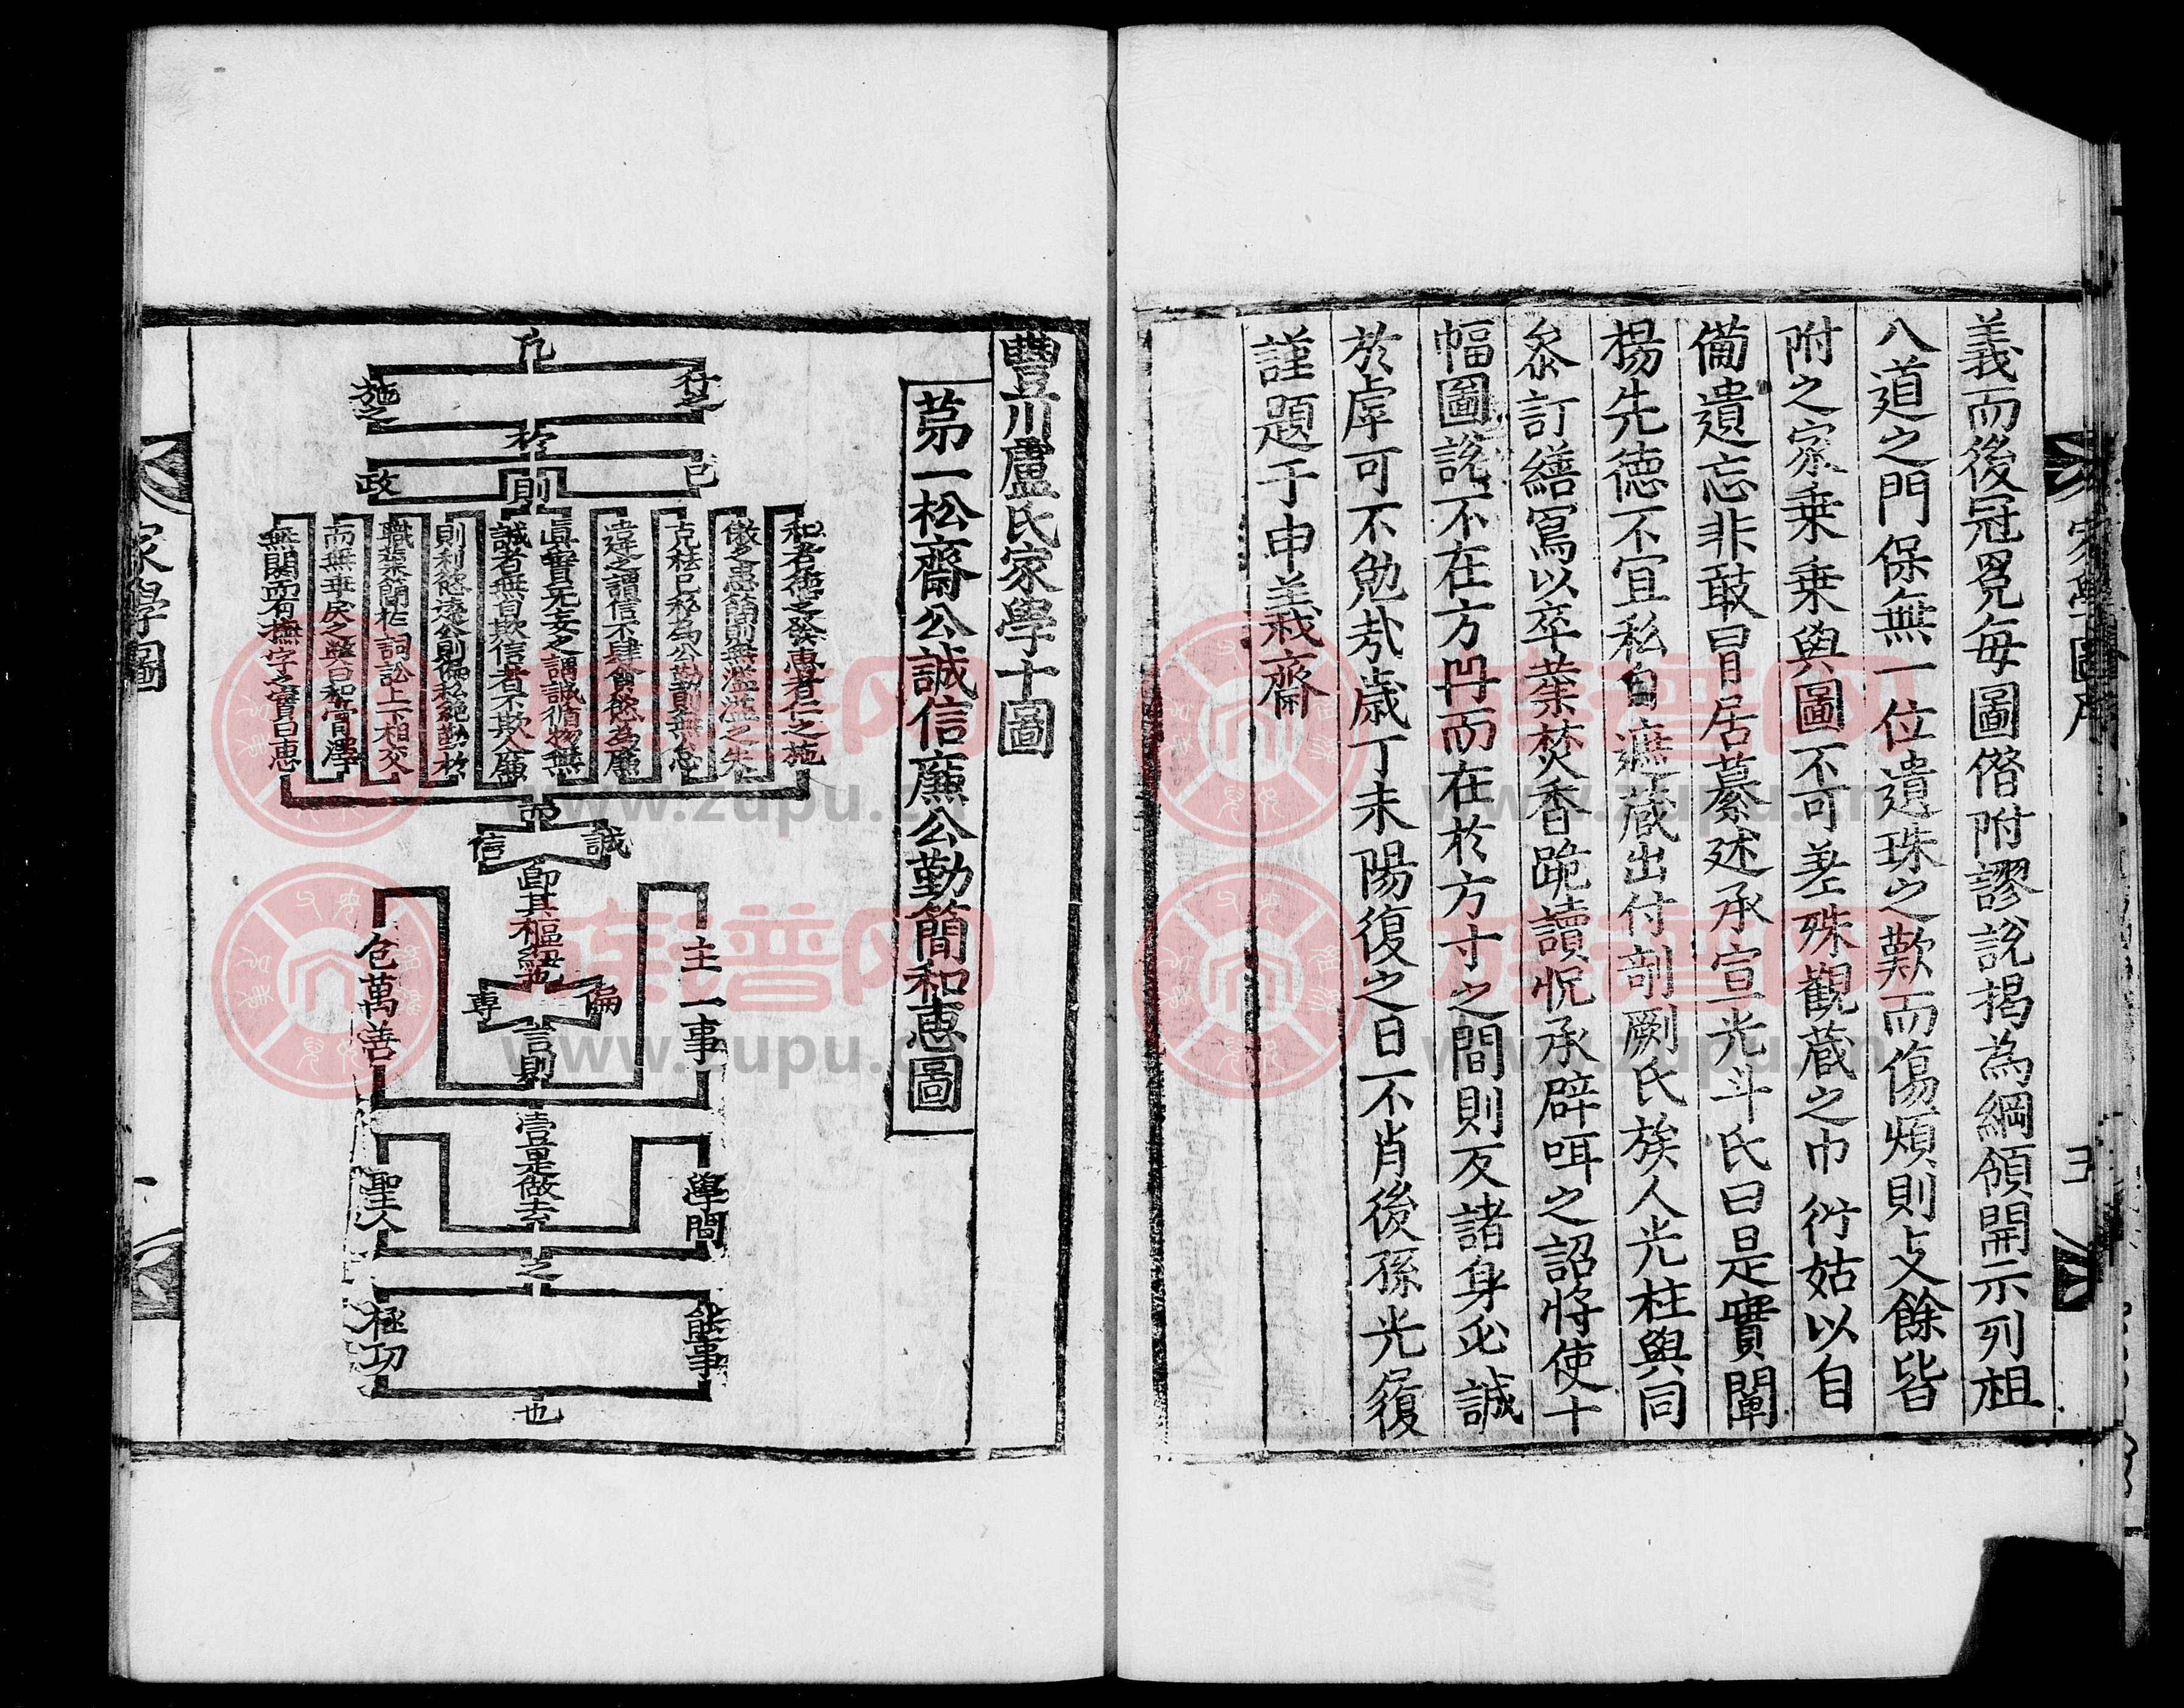 義而後冠冕每圖僭附謬說揭為綱領開示列祖
八道之門保無一位遺珠之歎而傷煩則攴餘皆
附之家乘乘與圖不可差殊觀蔵之巾衍姑以自
備遺忘非敢冒居纂述承宣光斗氏曰是實闡
揚先德不宜私自遮蔵出付剞劂氏族人光柱與同
叅訂繕寫以卒業焚香跪讀怳承辟咡之詔將使十
幅圖說不在方冊而在於方寸之間則反諸身必誠
於虖可不勉㢤歲丁未陽復之日不肖後孫光履
謹題于申義齋
家學圖序
三
豐川盧氏家學十圖
苐一松齋公誠信廉公勤簡和惠圖
凡
仕之
施之
於
己
政
則
和者德之發惠者仁之施
傲之患簡則無濫溢之失
克祛己私為公勤則無怠
違之謂信不肆貪慾為廉
眞實无妄之謂誠循物無
誠者無自欺信者不欺人廉
則利慾遠公則偏私絶勤於
職業簡於詞訟上下相交
而無乖戾之與曰和膏澤
無閼而有撫字之實曰惠
而
誠
信
卽其樞紐也
偏
專
言則
主一事
包萬善
壹是做去
學問
聖人
之
能事
極功
也
家學圖
一
族谱网
www.zupu.cn
族谱网
www.zupu.cn
族谱网
www.zupu.cn
族谱网
www.zupu.cn